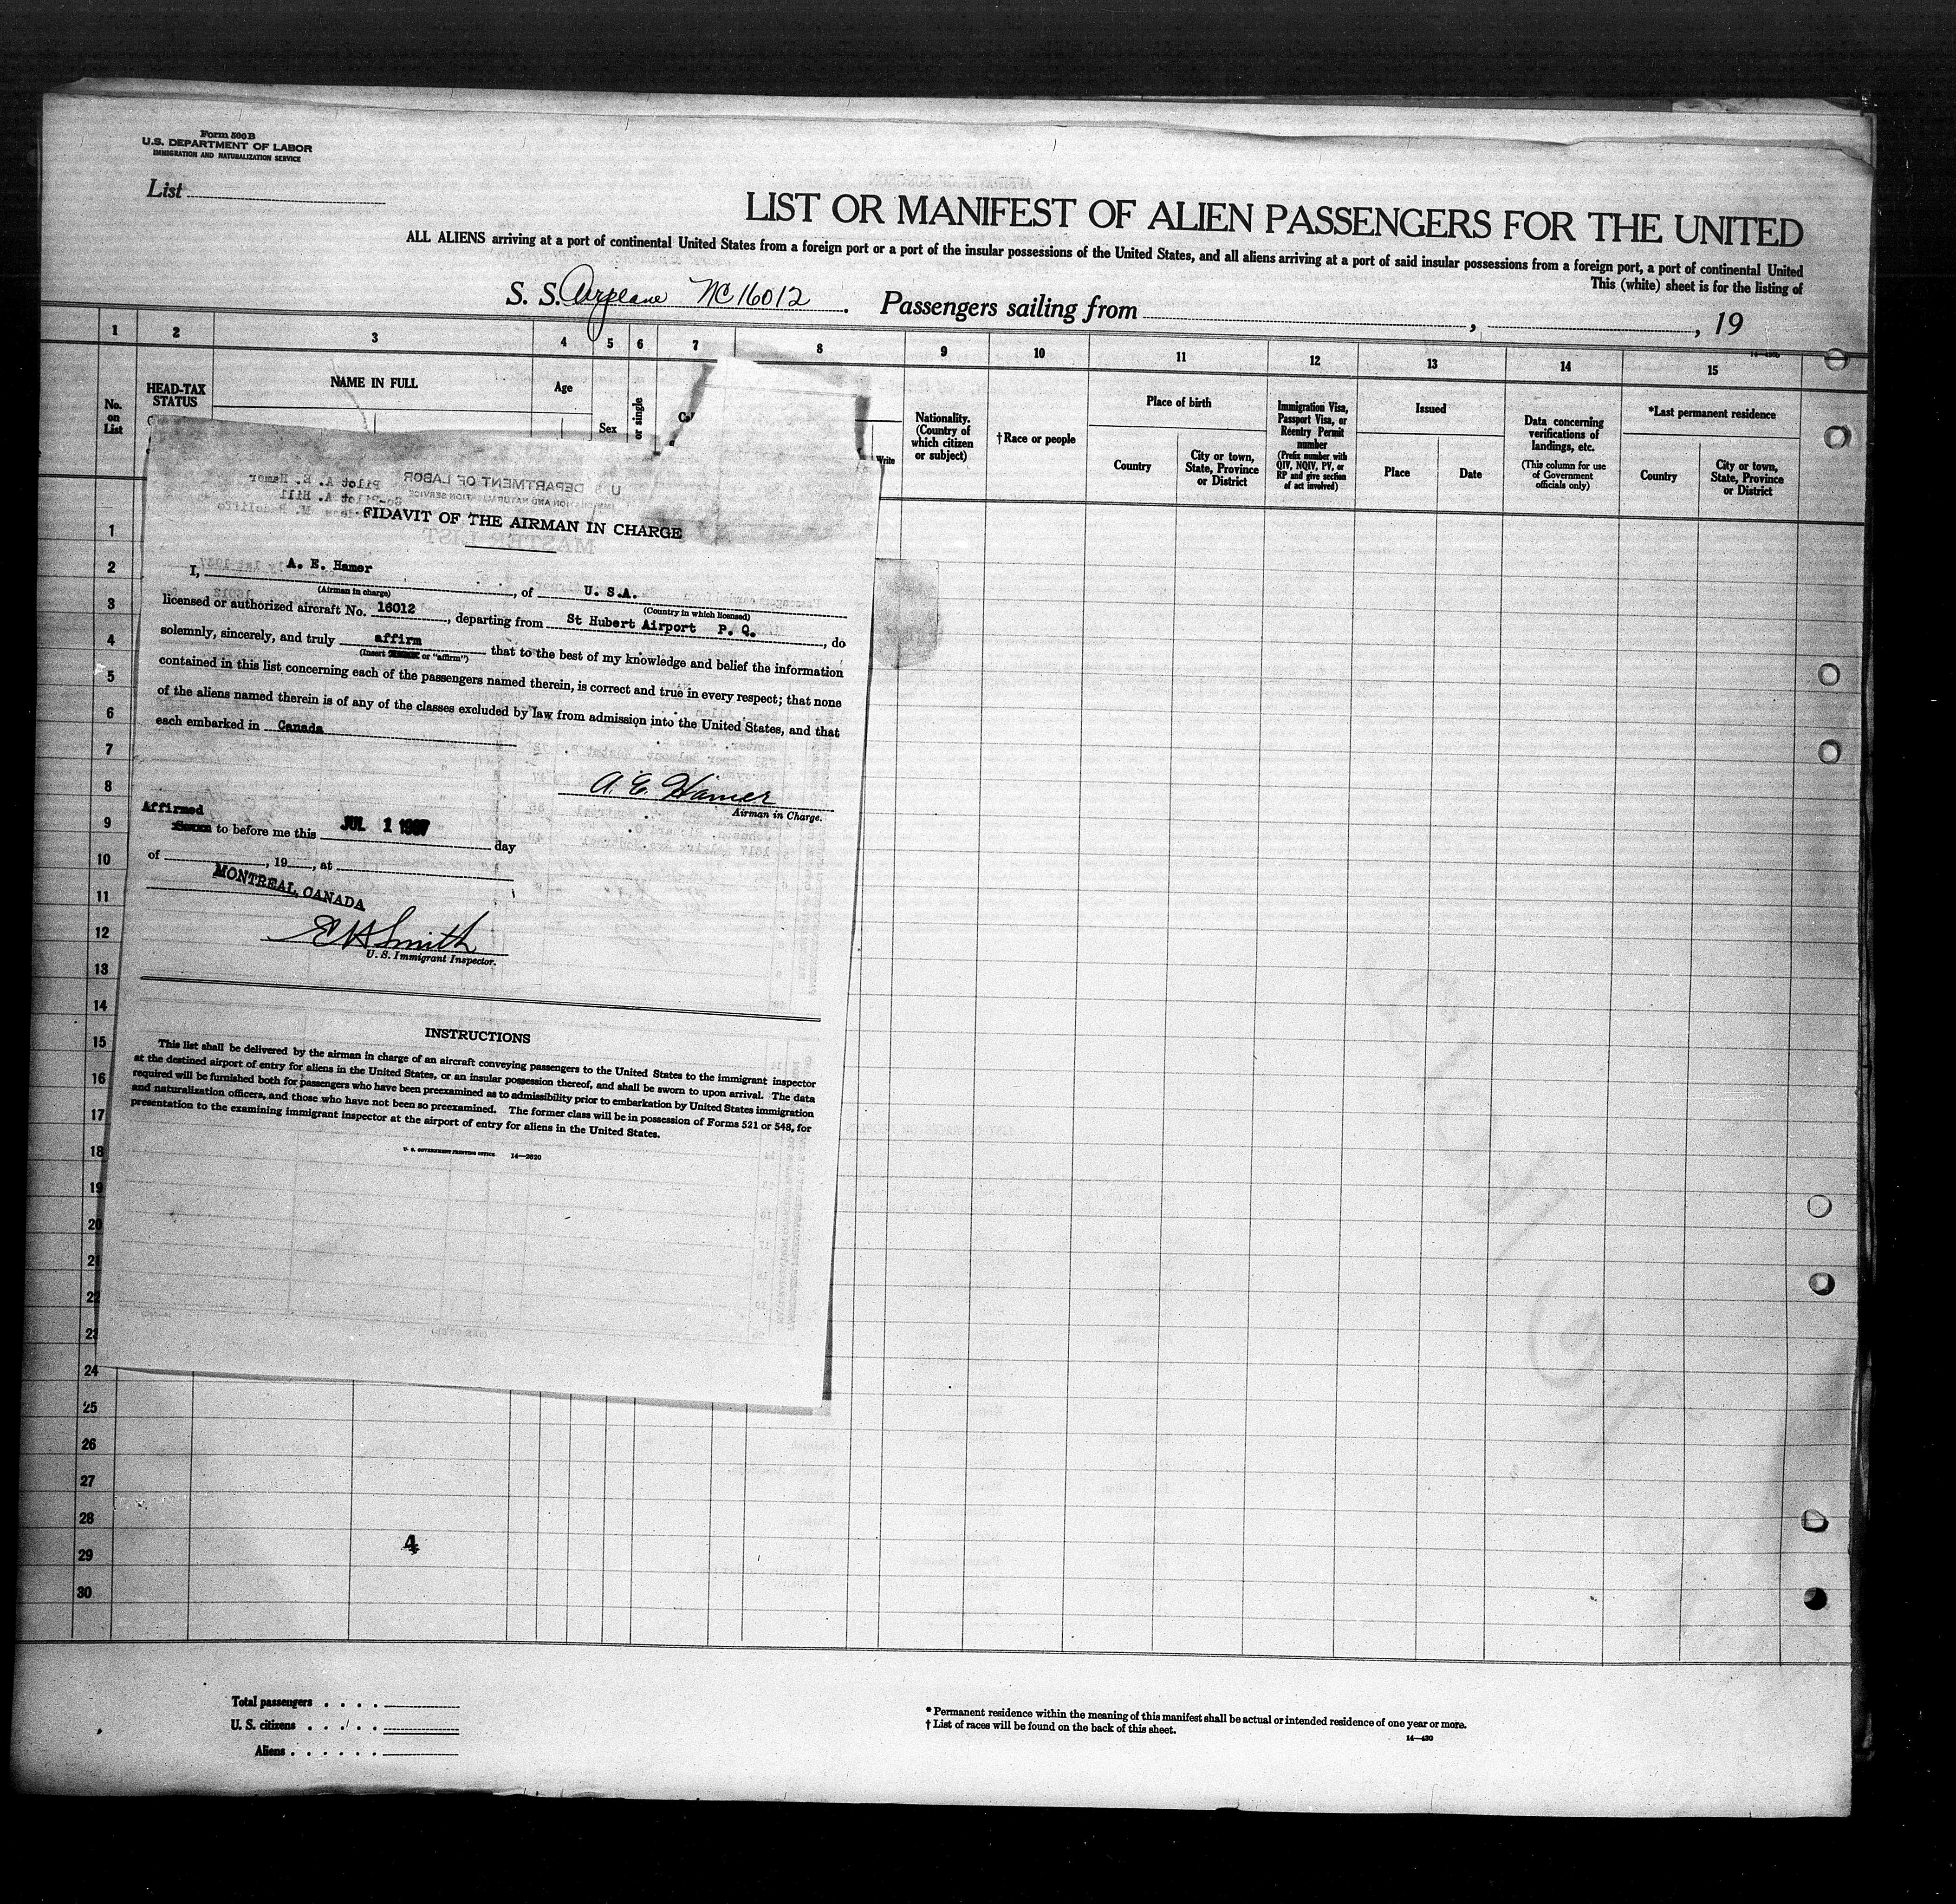 Form 500 B
U.S. DEPARTMENT OF LABOR
IMMIGRATION AND NATURALIZATION SERVICE
List
LIST OR MANIFEST OF ALIEN PASSENGERS FOR THE UNITED
ALL ALIENS arriving at a port of continental United States from a foreign port or a port of the insular possessions of the United States, and all aliens arriving at a port of said insular possessions from a foreign port, a port of continental United
This (white) sheet is for the listing of
S. S. Airplane NC16012. Passengers sailing from , , 19
1 2 3 4 5 6 7 8 9 10 11 12 13 14 15
No. on List
HEAD-TAX STATUS
NAME IN FULL
Age
Sex
or single
Write
Nationality. (Country of which citizen or subject)
† Race or people
Place of birth
Country
City or town, State, Province or District
Immigration Visa, Passport Visa, or Reentry Permit number
(Prefix number with QIV, NQIV, PV, or RP and give section of act involved)
Issued
Place
Date
Data concerning verifications of landings, etc.
(This column for use of Government officials only)
*Last permanent residence
Country
City or town, State, Province or District
U. S. DEPARTMENT OF LABOR
IMMIGRATION AND NATURALIZATION SERVICE
Pilot A. E. Hamer
Co-Pilot A. Hill
M. Radcliffe
MASTER LIST
FIDAVIT OF THE AIRMAN IN CHARGE
I, A. E. Hamer, of U. S.A.
(Airman in charge) (Country in which licensed)
licensed or authorized aircraft No. 16012, departing from St Hubert Airport P. Q., do
solemnly, sincerely, and truly affirm that to the best of my knowledge and belief the information
(Insert or "affirm")
contained in this list concerning each of the passengers named therein, is correct and true in every respect; that none
of the aliens named therein is of any of the classes excluded by law from admission into the United States, and that
each embarked in Canada
A. E. Hamer
Airman in Charge.
Affirmed
to before me this JUL 1 1937 day
of , 19 , at
MONTREAL, CANADA
E H Smith
U. S. Immigrant Inspector.
INSTRUCTIONS
This list shall be delivered by the airman in charge of an aircraft conveying passengers to the United States to the immigrant inspector
at the destined airport of entry for aliens in the United States, or an insular possession thereof, and shall be sworn to upon arrival. The data
required will be furnished both for passengers who have been preexamined as to admissibility prior to embarkation by United States immigration
and naturalization officers, and those who have not been so preexamined. The former class will be in possession of Forms 521 or 548, for
presentation to the examining immigrant inspector at the airport of entry for aliens in the United States.
U. S. GOVERNMENT PRINTING OFFICE 14—2620
1
2
3
4
5
6
7
8
9
10
11
12
13
14
15
16
17
18
19
20
21
22
23
24
25
26
27
28
29
30
4
Total passengers
U. S. citizens
Aliens
* Permanent residence within the meaning of this manifest shall be actual or intended residence of one year or more.
† List of races will be found on the back of this sheet.
14—430